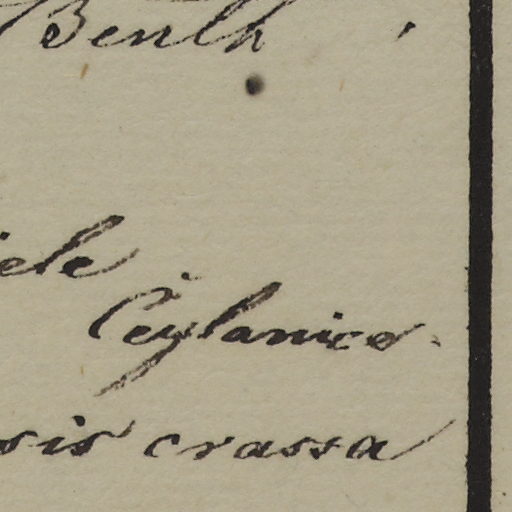 Benth
iele
Ceylanico
sis crassa